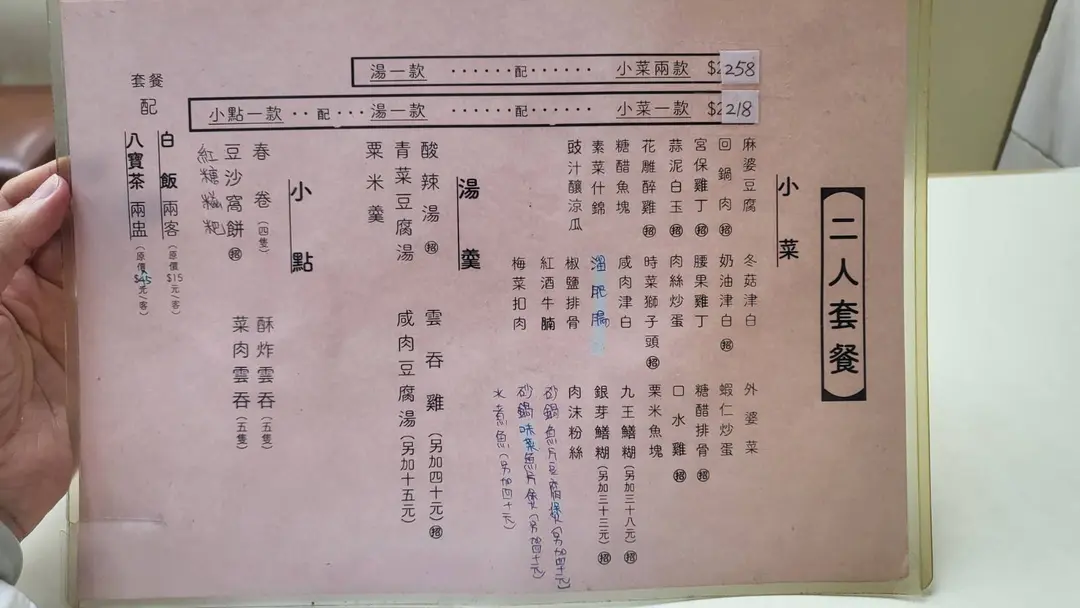 二人套餐
湯一款 ······配······ 小菜兩款 $258
小點一款 ·· 配 ··· 湯一款 ······配······ 小菜一款 $218
小菜
麻婆豆腐
回鍋肉 招
宮保雞丁 招
蒜泥白玉 招
花雕醉雞 招
糖醋魚塊
素菜什錦
豉汁釀涼瓜
冬菇津白
奶油津白 招
腰果雞丁
肉絲炒蛋
時菜獅子頭 招
咸肉津白
溜肥腸
椒鹽排骨
紅酒牛腩
梅菜扣肉
外婆菜
蝦仁炒蛋
糖醋排骨 招
口水雞 招
栗米魚塊
九王鱔糊(另加三十八元) 招
銀芽鱔糊(另加三十三元) 招
肉沫粉絲
砂鍋魚片豆腐煲(另加四十元)
砂鍋味菜魚片煲(另加四十元)
水煮魚(另加四十元)
湯羹
酸辣湯 招
青菜豆腐湯
粟米羹
雲吞雞(另加四十元) 招
咸肉豆腐湯(另加十五元)
小點
春卷(四隻)
豆沙窩餅 招
紅糖糍粑
酥炸雲吞(五隻)
菜肉雲吞(五隻)
套餐
配
白飯兩客(原價$15元/客)
八寶茶兩盅(原價$45元/客)